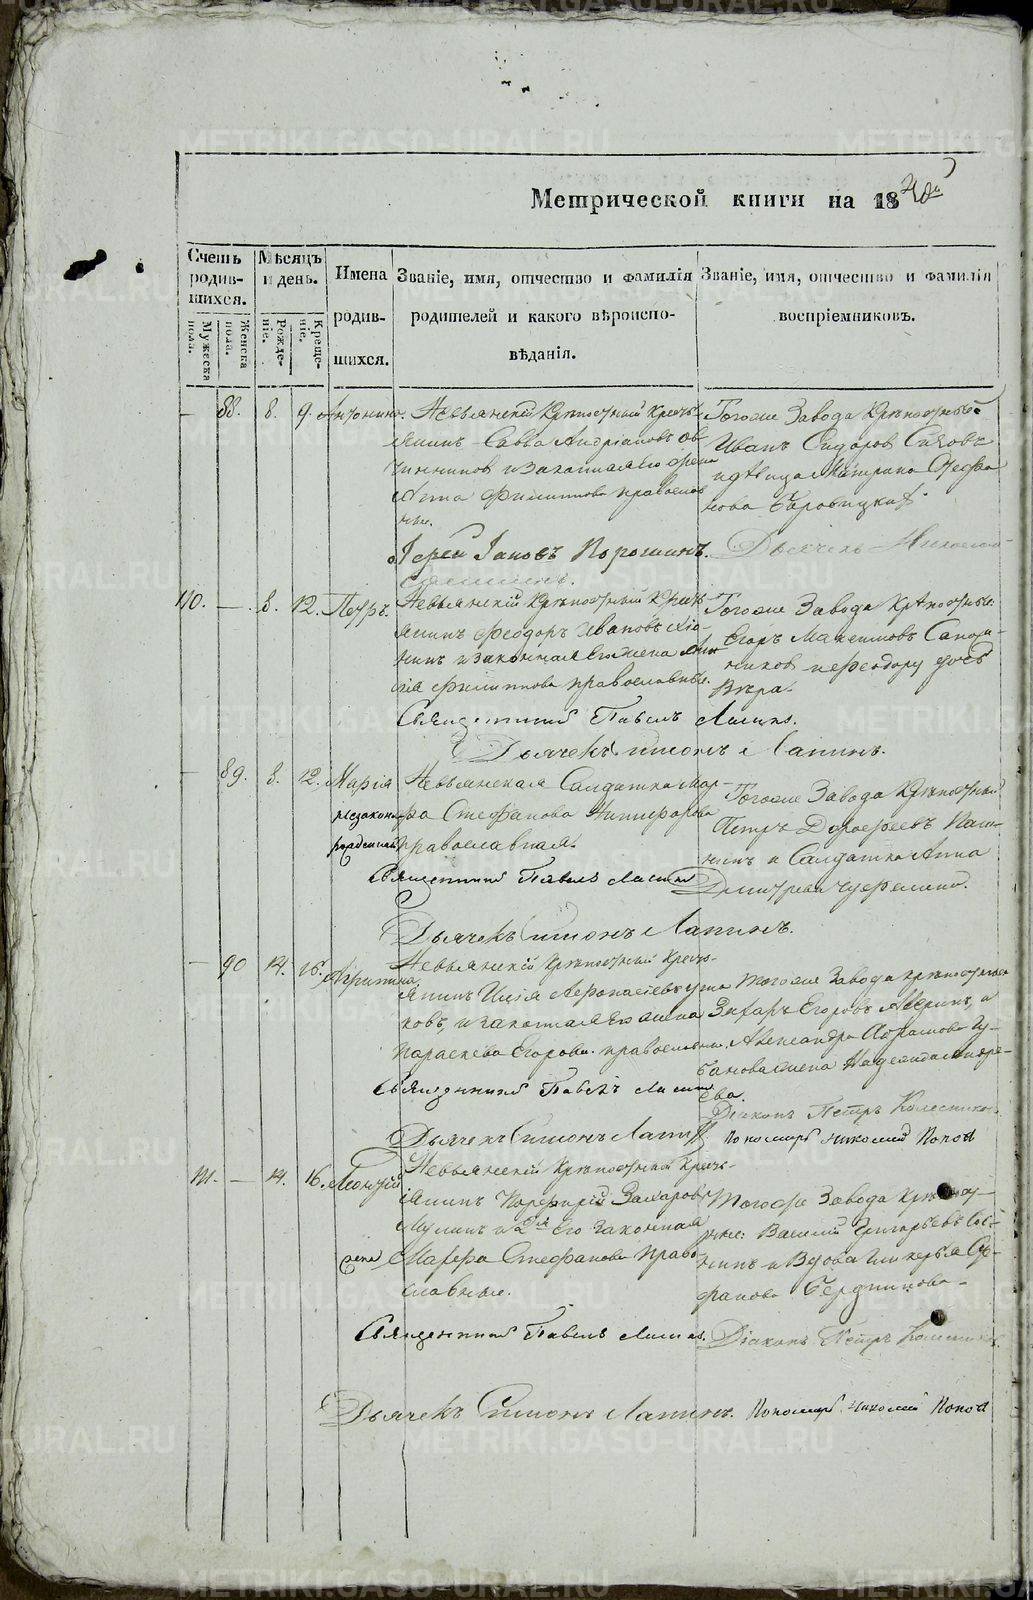 Метрической книги на 1840й
Счетъ родив- шихся.
Мужеска пола.
Женска пола.
Мѣсяцъ и день.
Рожде- ніе.
Креще- ніе.
Имена родив- шихся.
Званіе, имя, отчество и фамилія
родителей и какого вѣроиспо-
вѣданія.
Званіе, имя, отчество и фамилія
воспріемниковъ.
— 88. 8. 9. Антонина
Невьянскій Крѣпостный Кресть-
янинъ Савва Андріановъ Ов-
чинников и законная его жена
Анна Филиппова православ
ные.
Іерей Іаковъ Порошинъ.
Тогоже Завода Крѣпостные
Иванъ Сидоров
и девица Матрона Стефа
нова
Дьячекъ Николай
110. — 8. 12. Петръ.
Невьянскій Крѣпостный Кресть
янинъ Феодоръ Ивановъ
и законная его жена
Филиппова православные.
Священникъ Павелъ
Дьячекъ Симонъ Лапинъ.
Тогоже Завода Крѣпостные:
Егоръ Максимовъ Сапож-
ников и Феодору дочь
Вѣра.
— 89. 8. 12. Марія
незаконно
рожденная
Невьянская Солдатка Мар-
фа Стефанова Никифорова
православная.
Священникъ Павелъ
Дьячекъ Симонъ Лапинъ.
Тогоже Завода Крѣпостный
Петръ Дорофеевъ
и Солдатка Анна
Дмитрева
— 90 14. 16. Агрипина
Невьянскій Крѣпостный Кресть-
янинъ Илія Афонасіевъ
ковъ, и законная его жена
Параскева Егорова православные.
Священникъ Павелъ
Дьячекъ Симонъ Лапинъ
Тогоже Завода крѣпостные
Захаръ Егоровъ Аверинъ, и
Александра Абрамова Гу-
банова жена Надежда Андре-
ева.
Діаконъ Петръ Колесников
Пономарь Николай Попов
111. — 14. 16. Леонтій
Невьянскій Крѣпостный Кресть-
янинъ Порфирій Захаровъ
и 2я его законная
жена Марфа Стефанова Право-
славные.
Священникъ Павелъ
Тогоже Завода Крѣпост-
ные: Василій Григорьевъ
и Вдова Гликерья Сте-
фанова Бердникова.
Діаконъ Петръ Колесников
Дьячекъ Симонъ Лапинъ.
Пономарь Николай Попов
METRIKI.GASO-URAL.RU